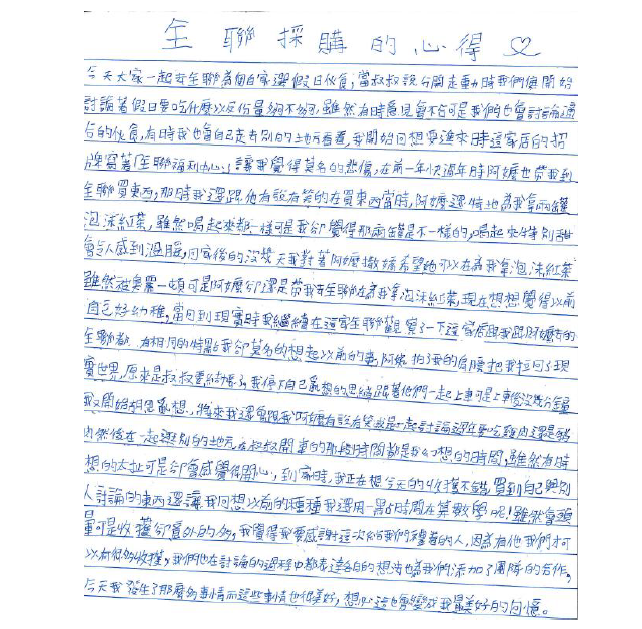 全聯採購的心得♡
今天大家一起去全聯為個自家選假日伙食,當叔叔說分開走動時我們便開始
討論著假日要吃什麼以及份量夠不夠,雖然有時意見會不合可是我們也會討論適
合的伙食,有時我也會自己走去別的地方看看,我開始回想要進來時這家店的招
牌寫著「全聯福利中心」讓我覺得莫名的悲傷,在前一年快過年時阿嬤也帶我到
全聯買東西,那時我還跟他有說有笑的在買東西當時,阿嬤還特地為我拿兩罐
泡沫紅茶,雖然喝起來都一樣可是我卻覺得那兩罐是不一樣的,喝起來特別甜
會令人感到溫暖,回家後的沒幾天我對著阿嬤撒嬌希望她可以在為我拿泡沫紅茶
雖然被臭罵一頓可是阿嬤卻還是帶我去全聯在為我拿泡沫紅茶,現在想想覺得以前
自己好幼稚,當回到現實時我繼續在這家全聯觀察了一下這家店跟我跟阿嬤去的
全聯都有相同的特點我卻莫名的想起以前的事,阿 拍了我的肩膀把我拉回了現
實世界,原來是叔叔要結帳了,我停下自己亂想的思緒跟著他們一起上車可是上車後沒幾分鐘
我又開始胡思亂想,將來我還會跟我阿嬤有說有笑或是一起討論過年要吃雞肉還是豬
肉然後在一起選別的地方,在叔叔開車的那段時間都是我幻想的時間,雖然有時
想的太扯可是卻會感覺得開心,到家時,我正在想今天的收獲不錯,買到自己與別
人討論的東西還讓我回想以前的種種我還用一點時間在算數學呢!雖然會頭
暈可是收獲卻意外的多,我覺得我要感謝這次給我們 的人,因為有他我們才可
以有很多收獲,我們也在討論的過程中都表達各自的想法也為我們添加了團隊的合作,
今天我發生了那麼多事情而這些事情也很美好,想必這也會變成我最美好的回憶。